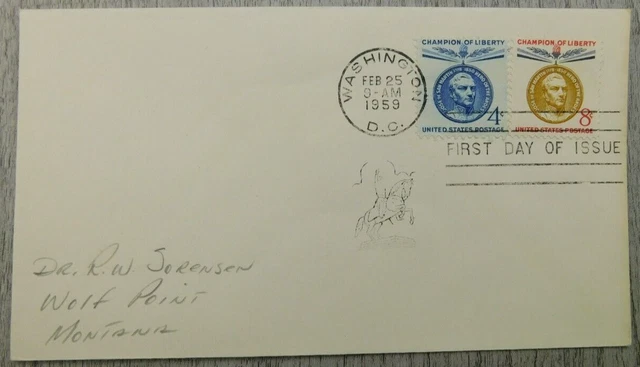 CHAMPION OF LIBERTY
4¢
UNITED STATES POSTAGE
CHAMPION OF LIBERTY
8¢
UNITED STATES POSTAGE
WASHINGTON
FEB 25
9-AM
1959
D.C.
FIRST DAY OF ISSUE
DR. R.W SORENSEN
WOLF POINT
MONTANA